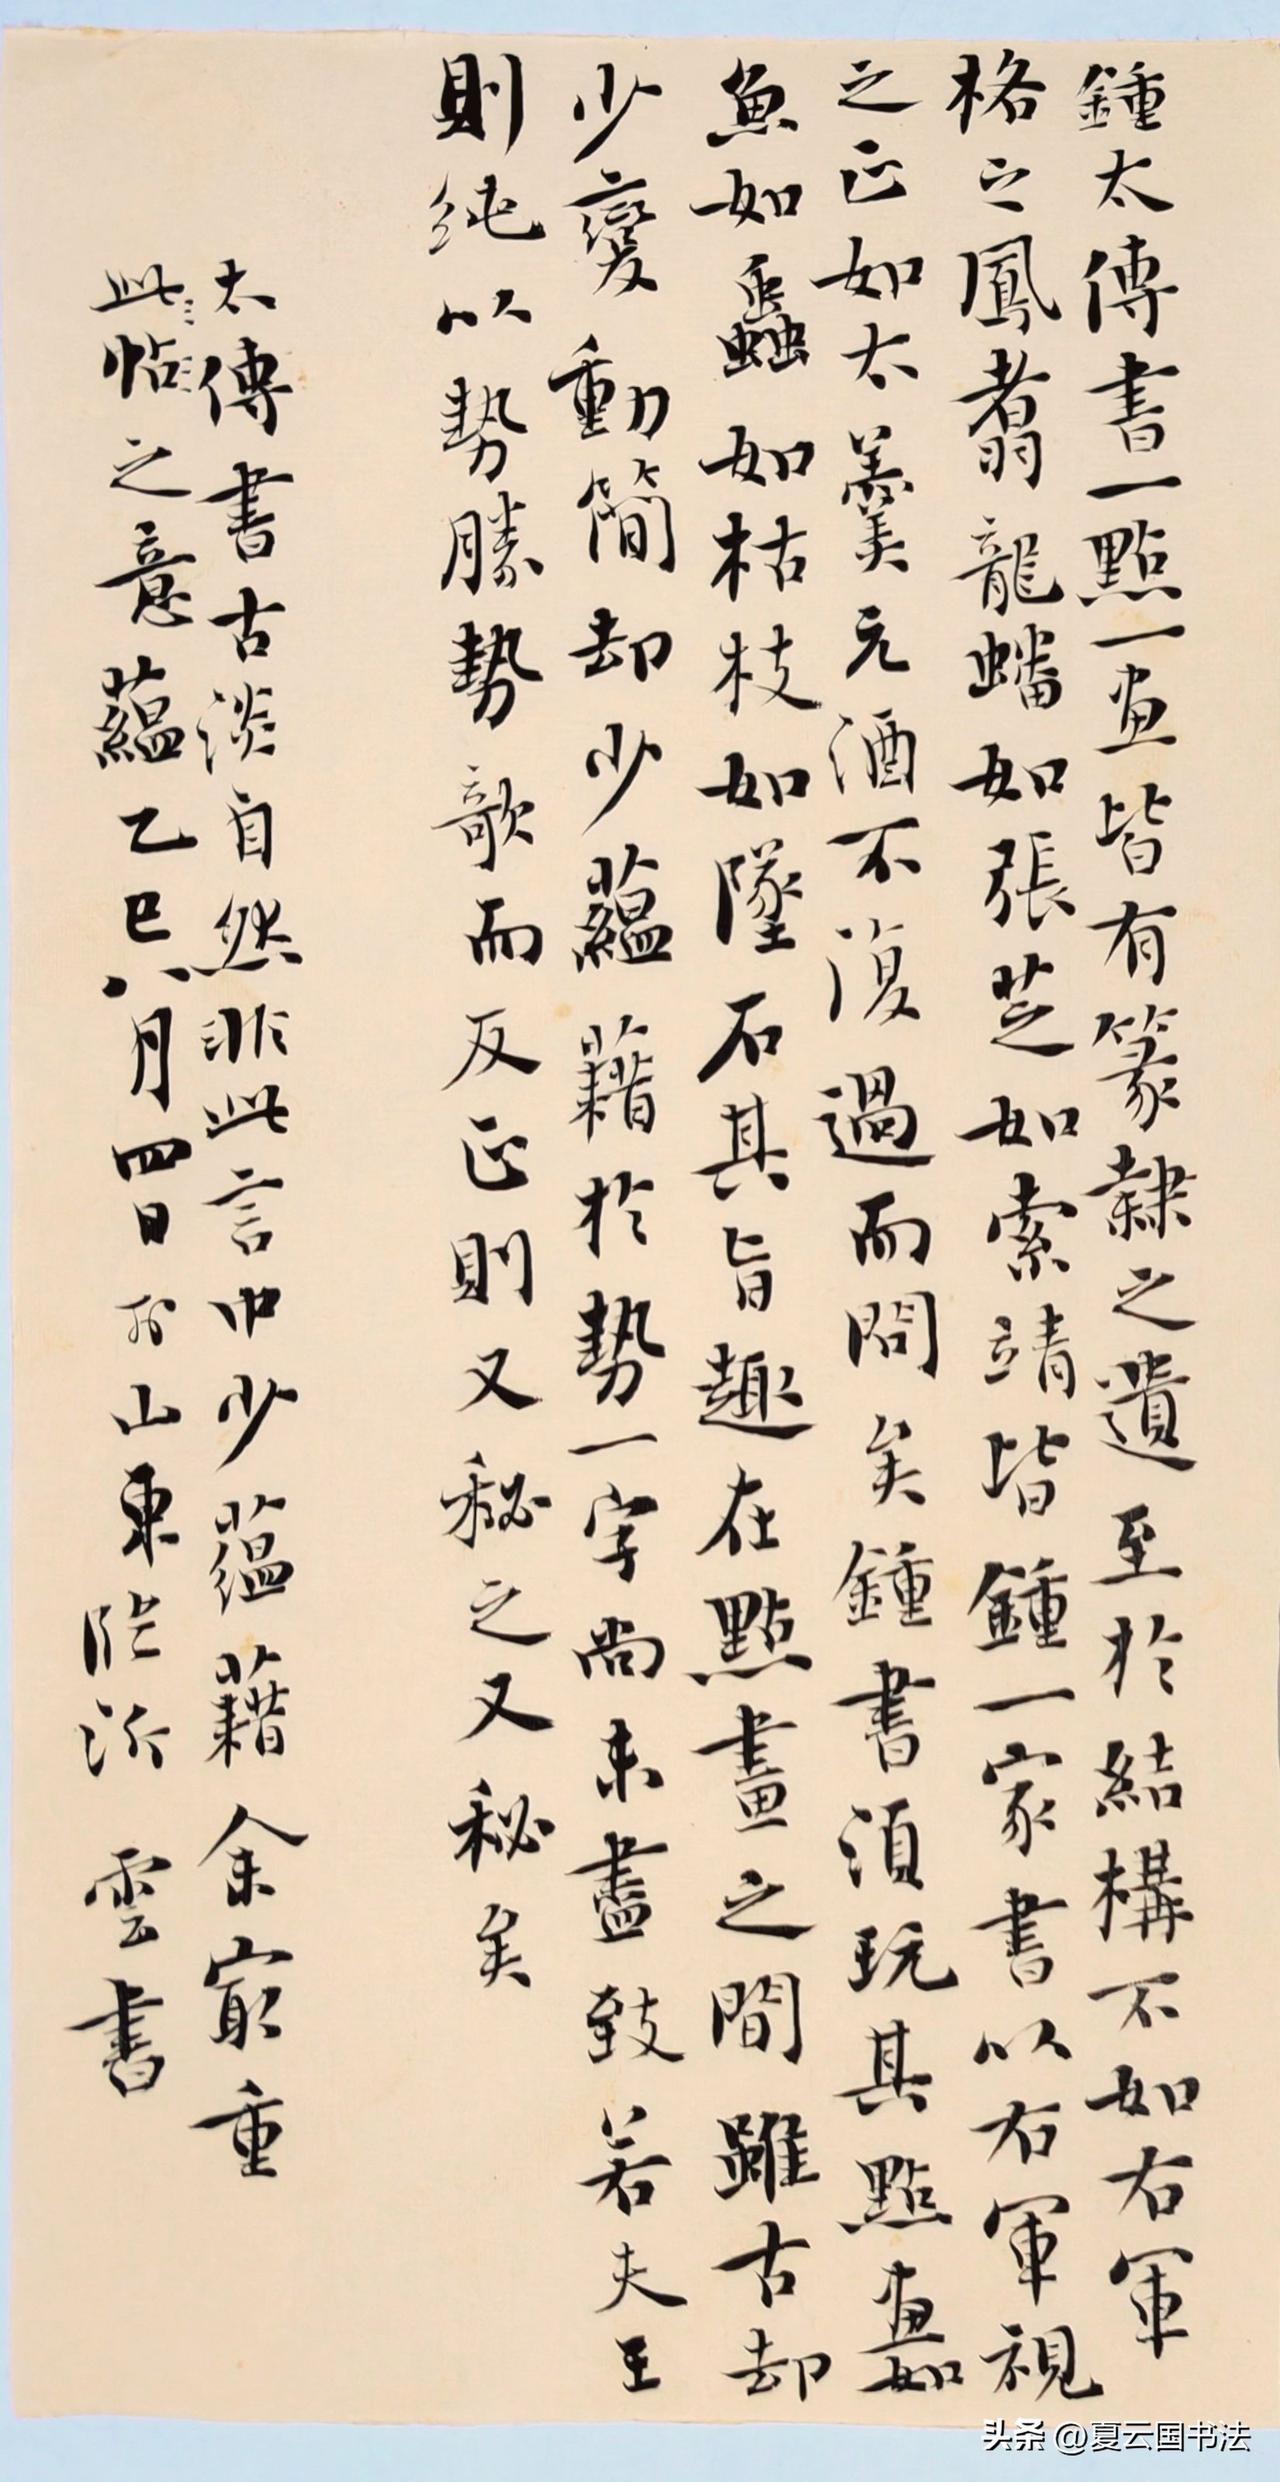 鍾太傅書一點一画皆有篆隸之遺至於結構不如右軍
格之鳳翥龍蟠如張芝如索靖皆鍾一家書以右軍視
之正如太羹元酒不復過而問矣鍾書須玩其點画如
魚如蟲如枯枝如墜石其旨趣在點畫之間雖古却
少變動簡却少蘊藉於勢一字尚未盡致若夫王
則純以勢勝勢欹而反正則又秘之又秘矣
太傅書古淡自然非此言中少蘊藉余寂重
此帖之意蘊乙巳八月四日於山東臨沂 雲書
头条 @夏云国书法